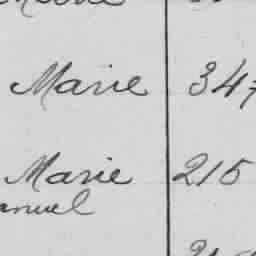 Marie 347
Marie 215
anuel